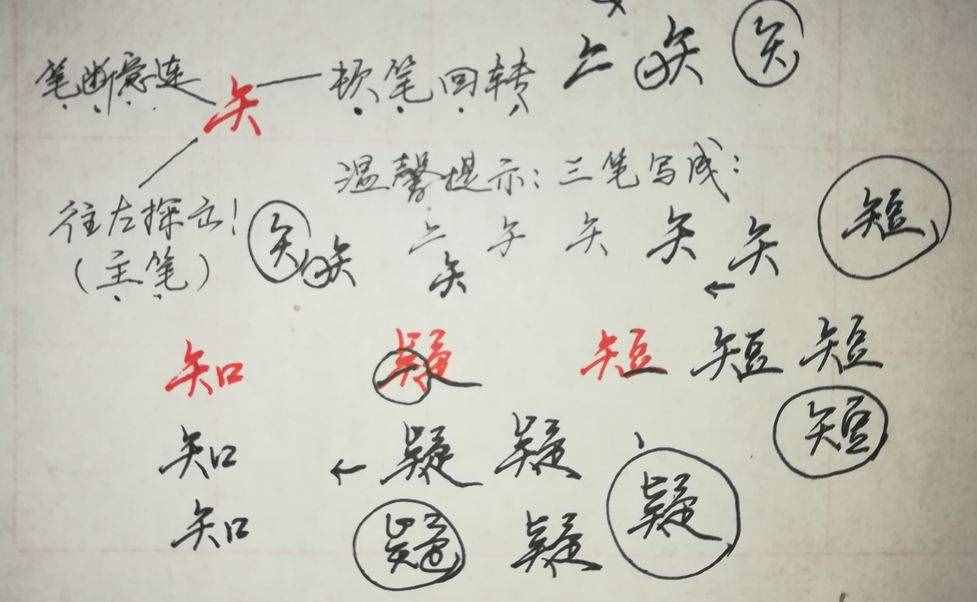 笔断意连 矢 软笔回转 矢 矢
温馨提示：三笔写成：
往左探出！ 矢 矢 矢 矢 矢 短
（主笔） 矢
知 疑 短 短 短
知 疑 疑 疑 短
知 疑 疑